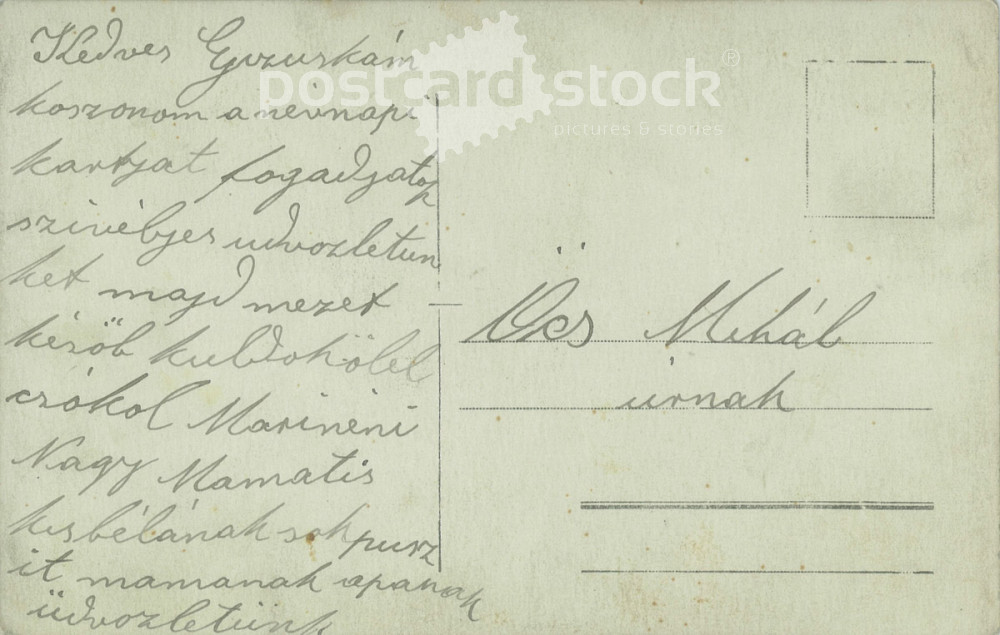 Kedves Gyuruskám
koszonom a nevnapi
kartjat fogadjatok
szivébjes udvozletun
ket majd mezet
késöb kuldok ölel
csókol Marinéni
Nagy Mamatis
kisbélának sok pusz
it mamanak apanak
üdvozletünk
postcard stock®
pictures & stories
Öcs Mihál
úrnak